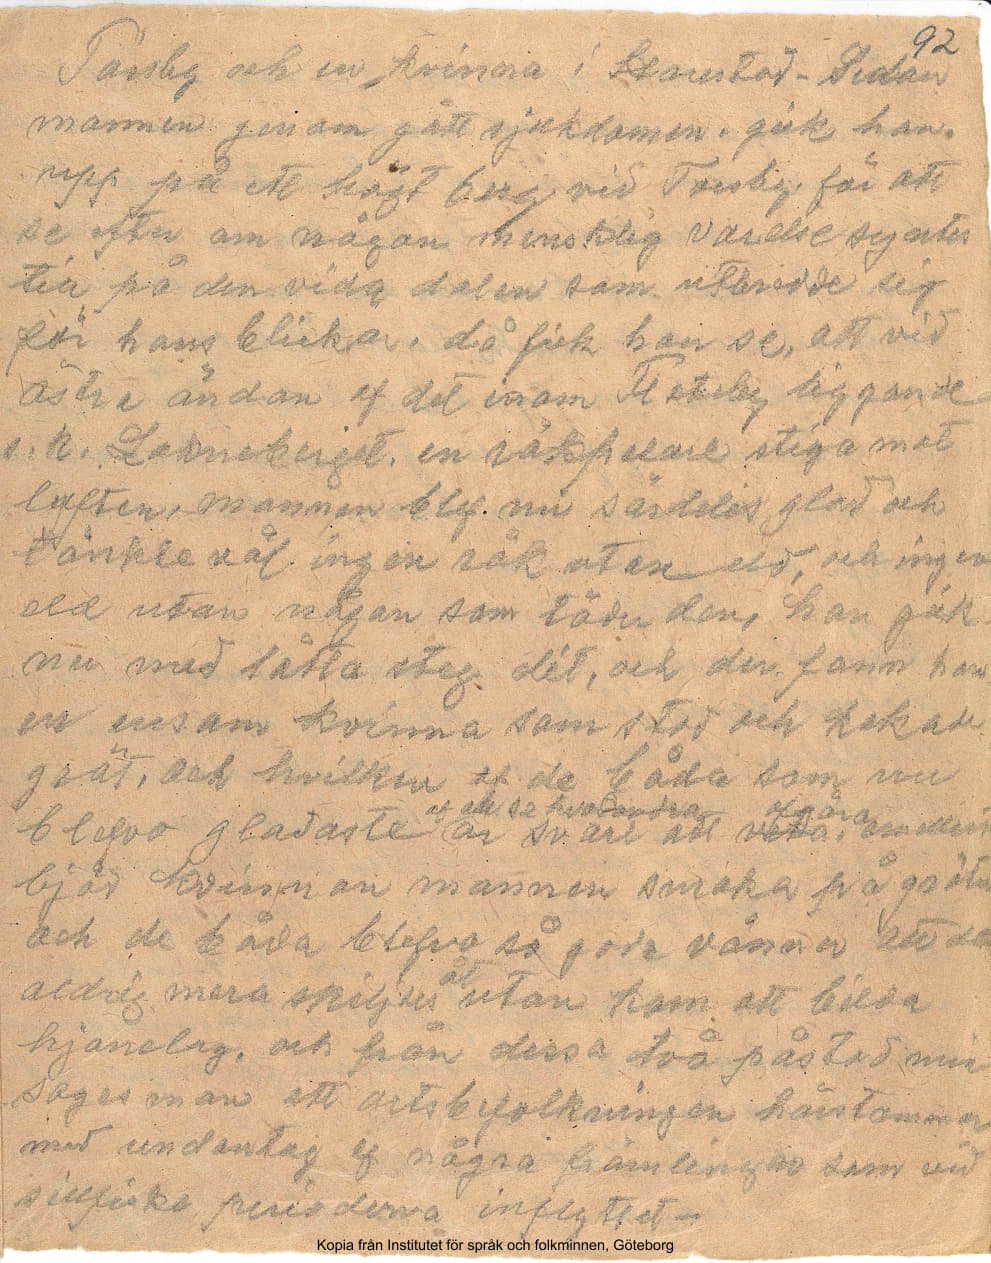 92
Torsby och en kvinna i Harestad - Sedan
mannen genom gått sjukdomen. gick han.
upp på ett högt berg vid Torsby, för att
se efter om någon mensklig varelse syntes
till på den vida dalen som utbredde sig
för hans blickar. då fick han se, att vid
östra ändan af det inom Flateby liggande
s.k. Ladneberget. en rökpelare stiga mot
luften, mannen blef nu särdeles glad och
tänkte väl ingen rök utan eld, och ingen
eld utan någon som töder den, han gick
nu med lätta steg dit, och der fann han
en ensam kvinna som stod och kokade
gröt, och hvilken af de båda som nu
blefvo gladaste af att se hvarandra är svårt att afgöra. emellertid
bjöd kvinnan mannen smaka på gröten
och de båda blefvo så goda vänner att de
aldrig mera skiljdes åt utan kom att bilda
hjonelag. och från dessa två påstod min
sagesman att ortsbefolkningen härstammar
med undantag af några främlingar som vid
sillfiske perioderna inflyttet -
Kopia från Institutet för språk och folkminnen, Göteborg